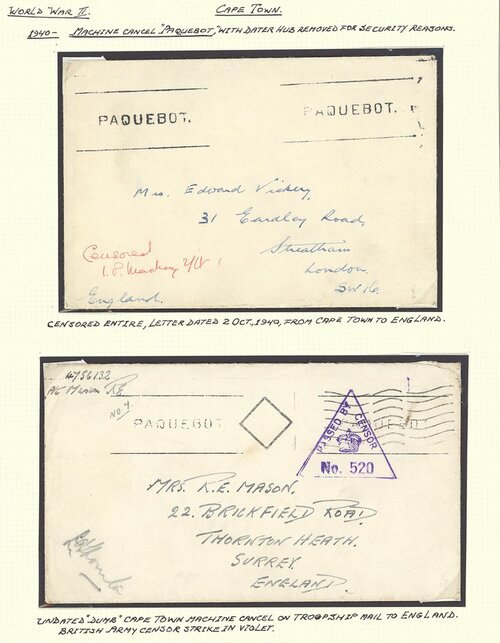 WORLD WAR II.
CAPE TOWN.
1940- MACHINE CANCEL "PAQUEBOT," WITH DATER HUB REMOVED FOR SECURITY REASONS.
PAQUEBOT.
PAQUEBOT.
Mrs. Edward Vickery,
31 Eardley Road,
Streatham
London.
SW16.
Censored
England.
CENSORED ENTIRE, LETTER DATED 2 OCT, 1940, FROM CAPE TOWN TO ENGLAND.
4756132
Mason RE
NO. 7
PAQUEBOT
PAQUEBOT
PASSED BY CENSOR
No. 520
MRS. R.E. MASON,
22. BRICKFIELD ROAD,
THORNTON HEATH.
SURREY.
ENGLAND.
UNDATED "DUMB" CAPE TOWN MACHINE CANCEL ON TROOPSHIP MAIL TO ENGLAND.
BRITISH ARMY CENSOR STRIKE IN VIOLET.